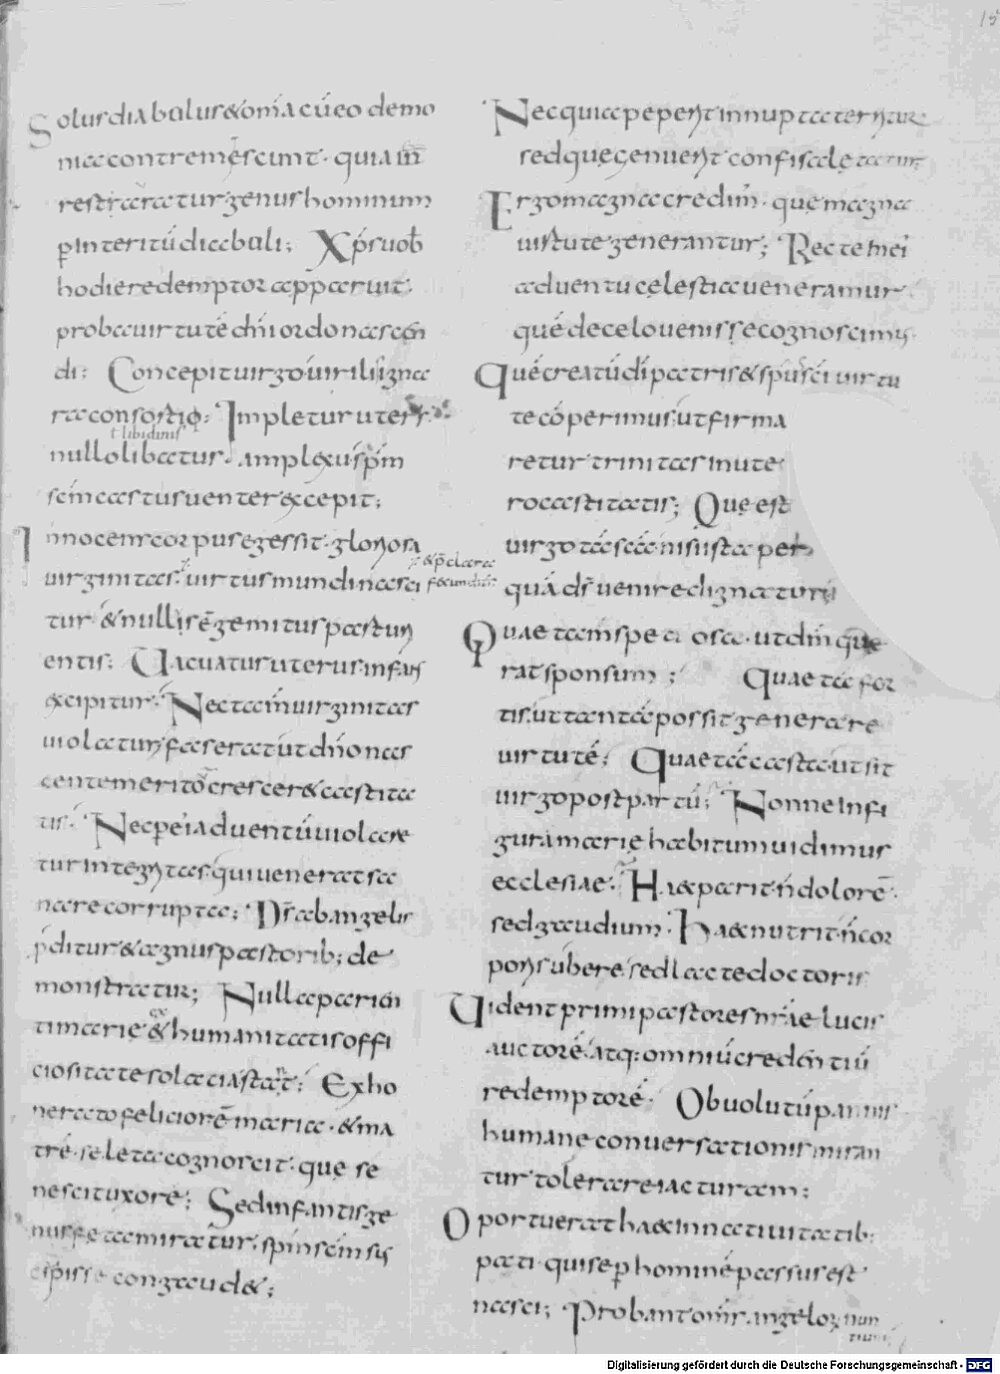 Solus diabolus & omīa cū eo demo
nia contremescunt · quia in
restauratur genus hominum
p̄ interitū diaboli; Xp̄s uob̄
hodie redemptor apparuit·
proba uirtutē dn̄i ordo nascen
di: Concepit uirgo· uirilis igna
ra consortio: Impletur uterus
ł libidinis
nullo libatus· amplexu sp̄m
sc̄m castus uenter excepit;
Innocens corpus egessit· gloriosa
uirginitas· uirtus mundi nasci
& p̄clara
fecunditas
tur· & nullis ē gemitus parturi
entis: Vacuatur uterus infans
excipitur· Nec tam̄ uirginitas
uiolatur; fas erat ut dn̄o nas
cente meritū cresceret castita
tis· Nec p̄ ei aduentū uiolare
tur integritas· qui uenerat sa
nare corrupta; Dn̄s ab angelis
p̄ditur & agnus pastorib; de
monstratur; Nulla parien
ti marie ex humanitatis offi
ciositate solacia stant; Exho
nerato feliciorē maria· & ma
trē· se leta cognoscit· que se
nescit uxorē; Sed infantis ge
nus se tam miratur· sp̄m sc̄m sus
cepisse congaudet;
Nec quia peperit innupta terretur
sed que genuerit confisa letatur
Ergo magna credim̄· que magna
uirtute generantur; Recte mei
aduentu celestia ueneramur·
quē de celo uenisse cognoscimus·
Quē creatū dī patris & sp̄s sc̄i uirtu
te cōperimus· ut firma
retur trinitas in ute
ro castitatis; Que est
uirgo tā sc̄a· nisi ista per
quā ds̄ uenire dignatur;
Quae tam speciosa· ut dn̄m que
rat sponsum; Quae ta for
tis· ut tantā possit generare
uirtutē; Quae tā casta· ut sit
uirgo post partū; Nonne in fi
gura marie habitum uidimus
ecclesiae· Haec parit n̄ dolorē·
sed gaudium· Haec nutrit n̄ cor
poris ubere· sed lacte doctoris
Vident primi pastores nr̄ae lucis
auctorē· atq: omniū credentiū
redemptorē· Obuolutū pannis
humane conuersationis miran
tur tolerare iacturam;
Oportuerat haec in natiuitatib:
pati· qui se p̄ hominē passus est
nasci; Probant om̄s angelorum
nun
tium